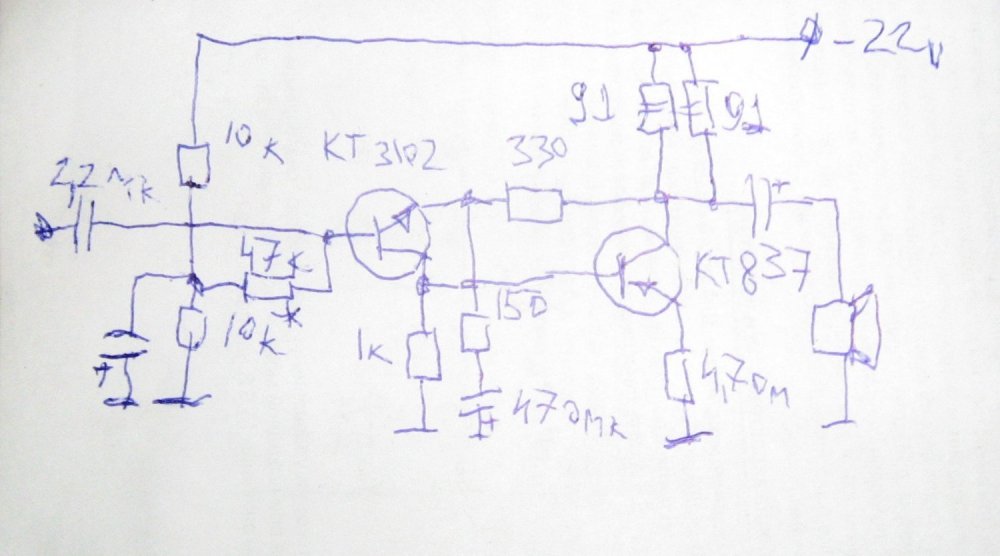 -22v
91
91
10к
КТ3102
330
2,2мк
47к
*
КТ837
10к
150
1к
470мк
4,7Ом
+
+
+